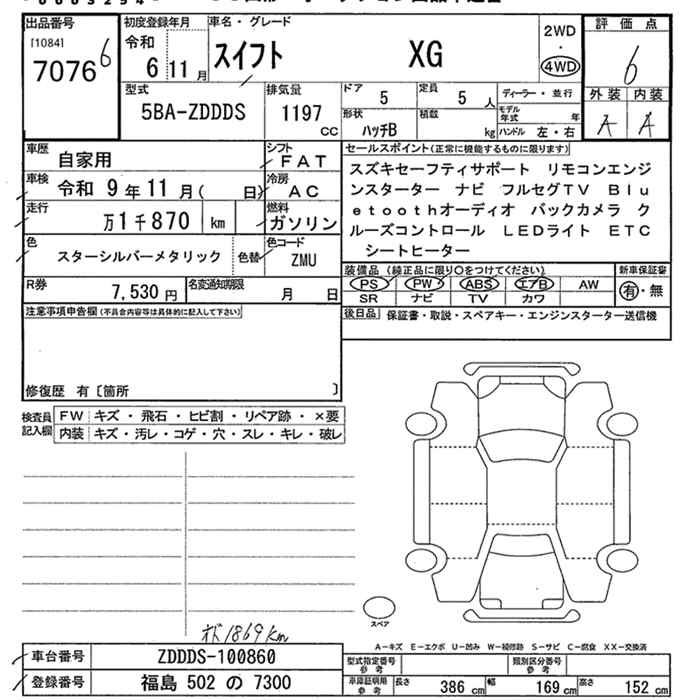 出品番号
[1084]
7076
6
初度登録年月
令和
6 11 月
車名・グレード
スイフト XG
2WD
・
4WD
評価点
6
外装 内装
A A
型式
5BA-ZDDDS
排気量
1197
cc
ドア 5
定員 5 人
形状 ハッチB
積載 kg
ディーラー・並行
モデル年式 年
ハンドル 左・右
車歴 自家用
シフト FAT
車検 令和 9年11月( 日)
冷房 AC
走行 万1千870 km
燃料 ガソリン
色 スターシルバーメタリック 色替
色コード ZMU
R券 7,530 円
名変通知期限 月 日
セールスポイント(正常に機能するものに限ります)
スズキセーフティサポート リモコンエンジ
ンスターター ナビ フルセグTV Blu
etoothオーディオ バックカメラ ク
ルーズコントロール LEDライト ETC
シートヒーター
装備品(純正品に限り○をつけてください)
PS PW ABS エアB AW
SR ナビ TV カワ
新車保証書
有・無
後日品 保証書・取説・スペアキー・エンジンスターター送信機
注意事項申告欄(不具合内容等は具体的に記入して下さい)
修復歴 有〔箇所 〕
検査員記入欄
FW キズ・飛石・ヒビ割・リペア跡・×要
内装 キズ・汚レ・コゲ・穴・スレ・キレ・破レ
スペア
オド1869km
A-キズ E-エクボ U-凹み W-補修跡 S-サビ C-腐食 XX-交換済
車台番号 ZDDDS-100860
登録番号 福島 502 の 7300
型式指定番号参考
類別区分番号参考
車庫証明用参考
長さ 386 cm
幅 169 cm
高さ 152 cm